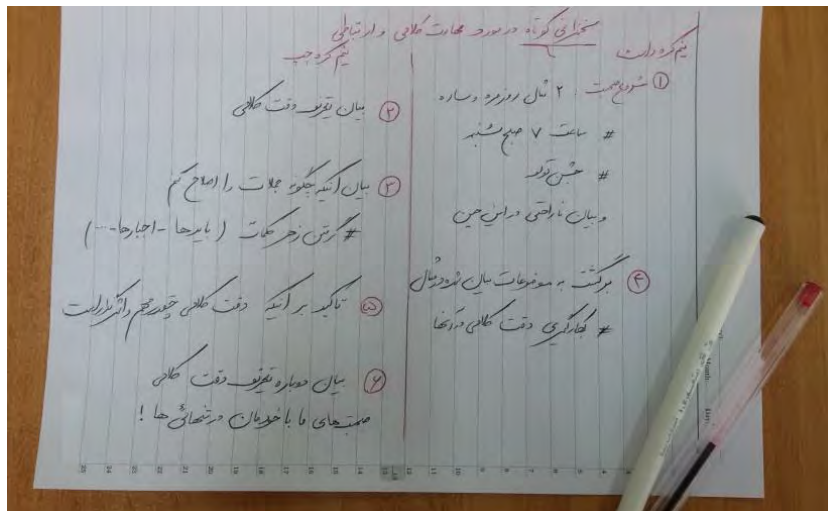 سخنرانی کوتاه در مورد مهارت کلامی و ارتباطی
نیم کره راست
① شروع صحبت: ۲ مثال روزمره و ساده
# ساعت ۷ صبح شنبه
# جشن تولد
و بیان ناراحتی در این حین
④ برگشت به موضوعات بیان شده در مثال
# بکارگیری دقت کلامی در آنها
نیم کره چپ
② بیان تعریف دقت کلامی
③ بیان اینکه چگونه جملات را اصلاح کنیم
# گرفتن زهر کلمات (بایدها - اجبارها - ...)
⑤ تاکید بر اینکه دقت کلامی چقدر مهم و اثرگذار است
⑥ بیان دوباره تعریف دقت کلامی
صحبت‌های ما با خودمان در تنهائی ها!